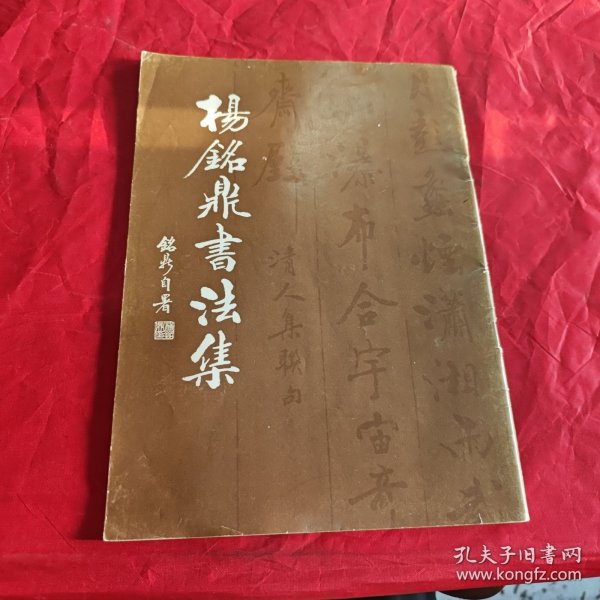 楊銘鼎書法集
銘鼎自署
瀟湘雨
瀑布合宇宙奇
齋
清人集聯句
孔夫子旧书网
www.kongfz.com